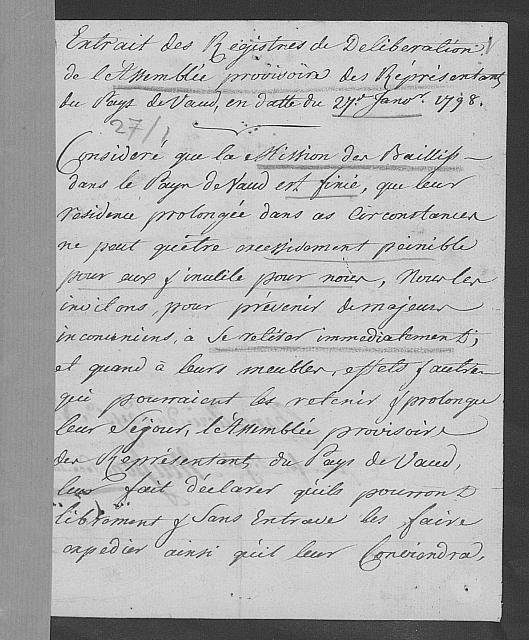 Extrait des Régistres de Délibération
de l'Assemblée provisoire des Réprésentants
du Pays de Vaud, en datte du 27.e Janvr. 1798.
27/1
Consideré que la Mission des Baillifs
dans le Pays de Vaud est finie, que leur
résidence prolongée dans ces Circonstances
ne peut qu'être excessivement peinible
pour eux & inutile pour nous, Nous les
invitons, pour prévenir de majeurs
inconveniens, à se retirer immediatement,
et quand à leurs meubles, effets & autres
qui pourraient les retenir & prolonger
leur Séjour, l'Assemblée provisoire
des Représentants du Pays de Vaud,
leur fait déclarer qu'ils pourront
librement & Sans Entrave les faire
expedier ainsi qu'il leur Conviendra,